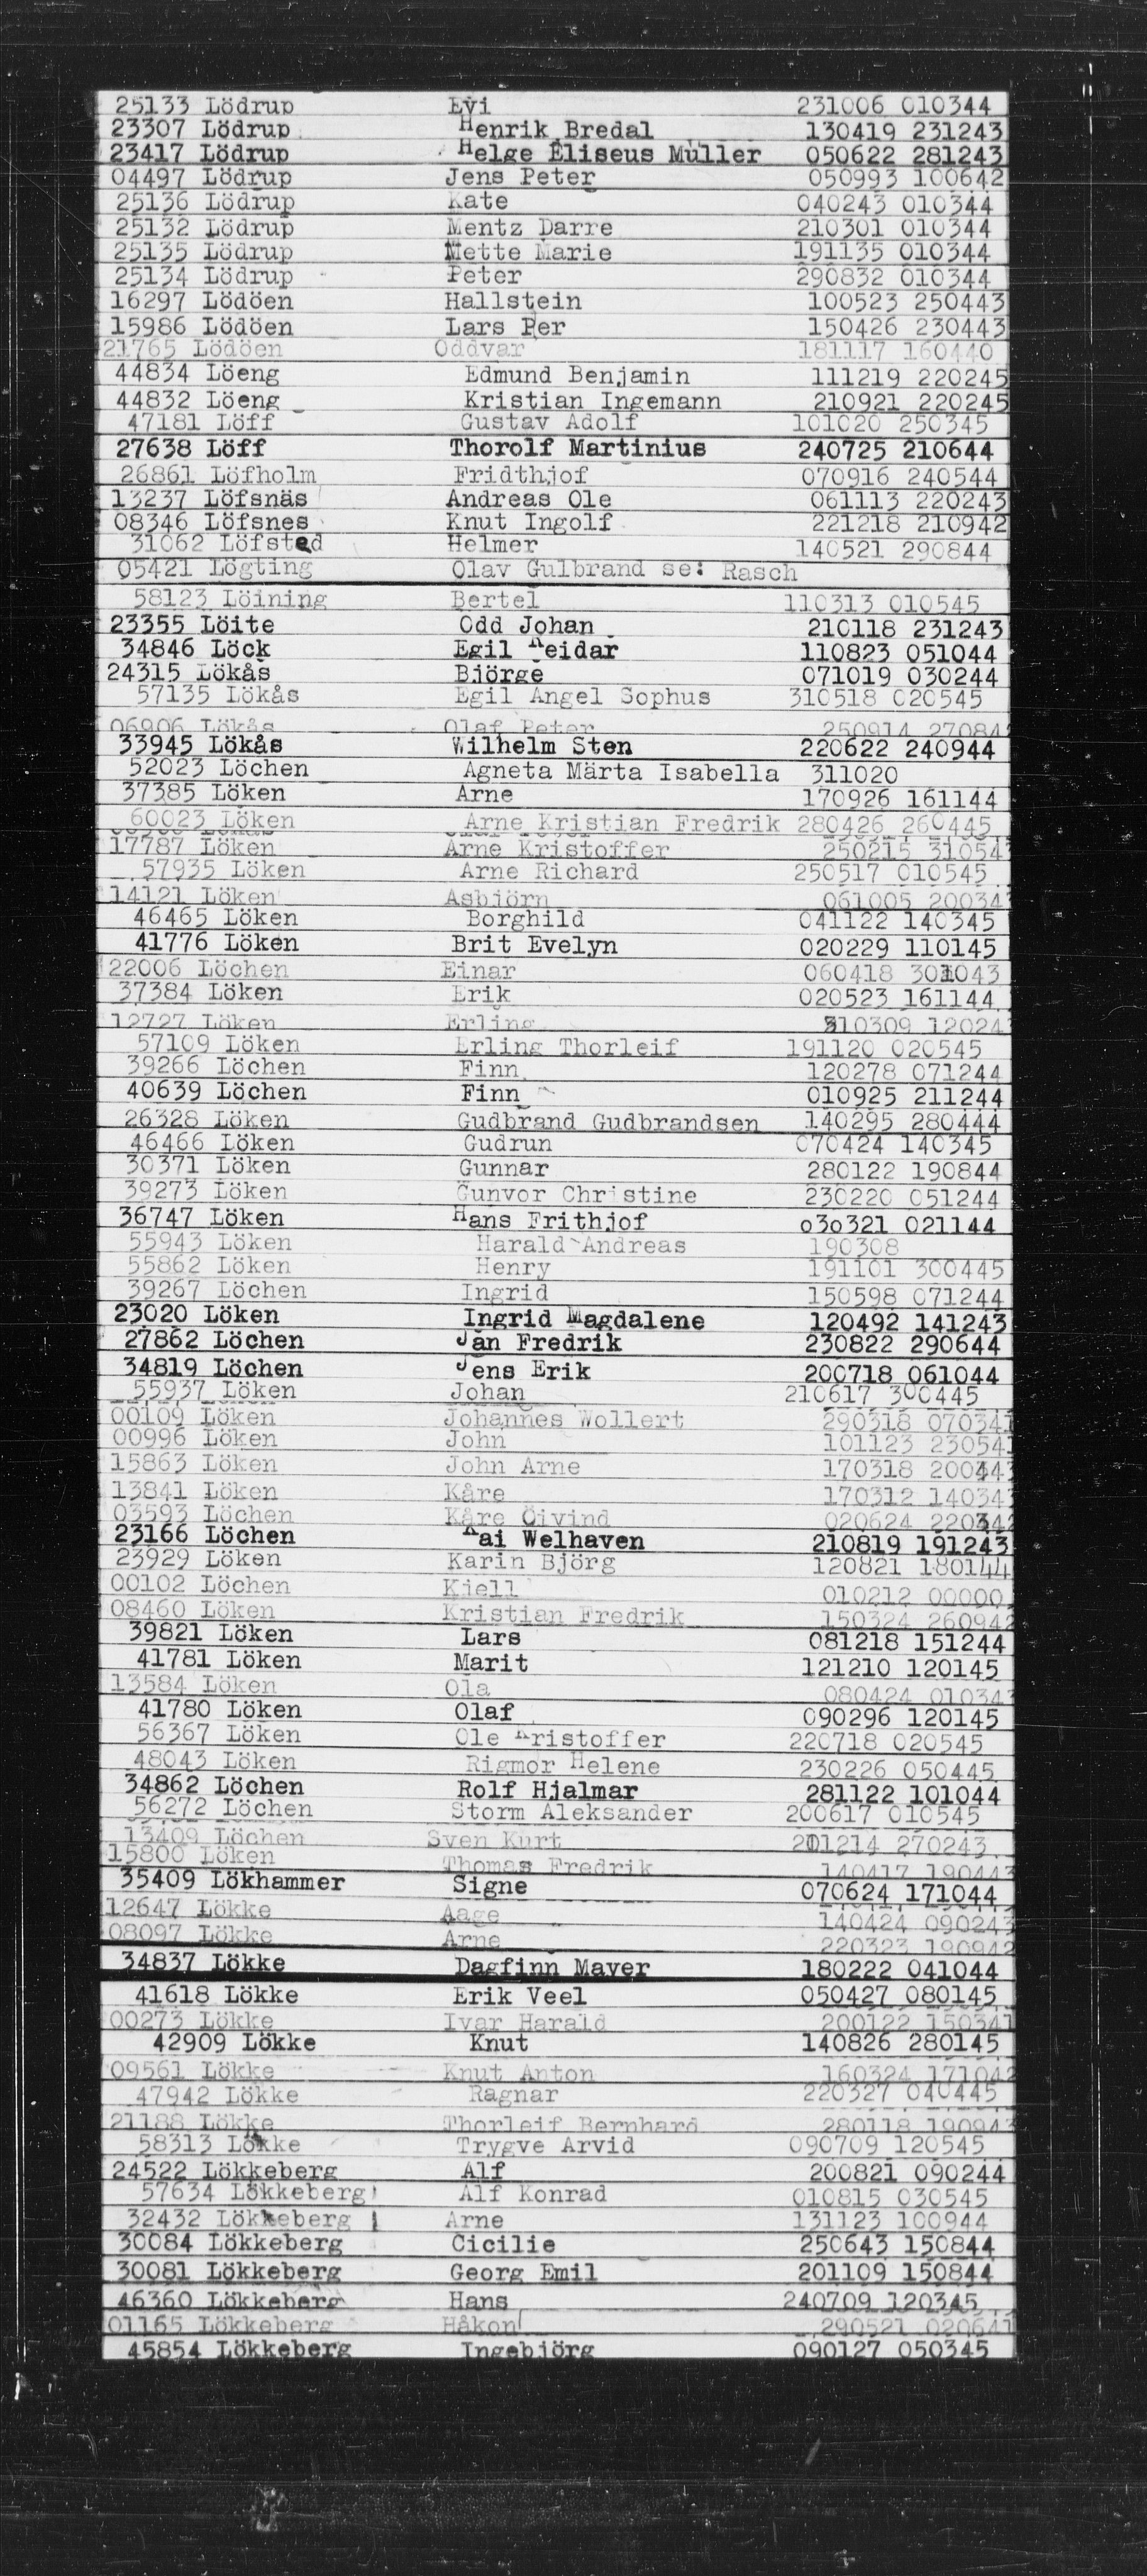 25133 Lödrup Evi 231006 010344
23307 Lödrup Henrik Bredal 130419 231243
23417 Lödrup Helge Eliseus Müller 050622 281243
04497 Lödrup Jens Peter 050993 100642
25136 Lödrup Kate 040243 010344
25132 Lödrup Mentz Darre 210301 010344
25135 Lödrup Mette Marie 191135 010344
25134 Lödrup Peter 290832 010344
16297 Lödöen Hallstein 100523 250443
15986 Lödöen Lars Per 150426 230443
21765 Lödöen Oddvar 181117 160440
44834 Löeng Edmund Benjamin 111219 220245
44832 Löeng Kristian Ingemann 210921 220245
47181 Löff Gustav Adolf 101020 250345
27638 Löff Thorolf Martinius 240725 210644
26861 Löfholm Fridthjof 070916 240544
13237 Löfsnäs Andreas Ole 061113 220243
08346 Löfsnes Knut Ingolf 221218 210942
31062 Löfsted Helmer 140521 290844
05421 Lögting Olav Gulbrand se: Rasch
58123 Löining Bertel 110313 010545
23355 Löite Odd Johan 210118 231243
34846 Löck Egil Reidar 110823 051044
24315 Lökås Björge 071019 030244
57135 Lökås Egil Angel Sophus 310518 020545
06906 Lökås Olaf Peter 250914 27084
33945 Lökås Wilhelm Sten 220622 240944
52023 Löchen Agneta Märta Isabella 311020
37385 Löken Arne 170926 161144
60023 Löken Arne Kristian Fredrik 280426 260445
17787 Löken Arne Kristoffer 250215 310543
57935 Löken Arne Richard 250517 010545
14121 Löken Asbjörn 061005 200343
46465 Löken Borghild 041122 140345
41776 Löken Brit Evelyn 020229 110145
22006 Löchen Einar 060418 301043
37384 Löken Erik 020523 161144
12727 Löken Erling 310309 12024
57109 Löken Erling Thorleif 191120 020545
39266 Löchen Finn 120278 071244
40639 Löchen Finn 010925 211244
26328 Löken Gudbrand Gudbrandsen 140295 280444
46466 Löken Gudrun 070424 140345
30371 Löken Gunnar 280122 190844
39273 Löken Gunvor Christine 230220 051244
36747 Löken Hans Frithjof 030321 021144
55943 Löken Harald Andreas 190308
55862 Löken Henry 191101 300445
39267 Löchen Ingrid 150598 071244
23020 Löken Ingrid Magdalene 120492 141243
27862 Löchen Jan Fredrik 230822 290644
34819 Löchen Jens Erik 200718 061044
55937 Löken Johan 210617 300445
00109 Löken Johannes Wollert 290318 070341
00996 Löken John 101123 230541
15863 Löken John Arne 170318 200443
13841 Löken Kåre 170312 140343
03593 Löchen Kåre Öivind 020624 220342
23166 Löchen Kai Welhaven 210819 191243
23929 Löken Karin Björg 120821 180144
00102 Löchen Kjell 010212 00000
08460 Löken Kristian Fredrik 150324 260942
39821 Löken Lars 081218 151244
41781 Löken Marit 121210 120145
13584 Löken Ola 080424 010343
41780 Löken Olaf 090296 120145
56367 Löken Ole Kristoffer 220718 020545
48043 Löken Rigmor Helene 230226 050445
34862 Löchen Rolf Hjalmar 281122 101044
56272 Löchen Storm Aleksander 200617 010545
13409 Löchen Sven Kurt 201214 270243
15800 Löken Thomas Fredrik 140417 190443
35409 Lökhammer Signe 070624 171044
12647 Lökke Aage 140424 090243
08097 Lökke Arne 220323 190942
34837 Lökke Dagfinn Mayer 180222 041044
41618 Lökke Erik Veel 050427 080145
00273 Lökke Ivar Harald 200122 150341
42909 Lökke Knut 140826 280145
09561 Lökke Knut Anton 160324 171042
47942 Lökke Ragnar 220327 040445
21188 Lökke Thorleif Bernhard 280118 190943
58313 Lökke Trygve Arvid 090709 120545
24522 Lökkeberg Alf 200821 090244
57634 Lökkeberg Alf Konrad 010815 030545
32432 Lökkeberg Arne 131123 100944
30084 Lökkeberg Cicilie 250643 150844
30081 Lökkeberg Georg Emil 201109 150844
46360 Lökkeberg Hans 240709 120345
01165 Lökkeberg Håkon 290521 020641
45854 Lökkeberg Ingebjörg 090127 050345